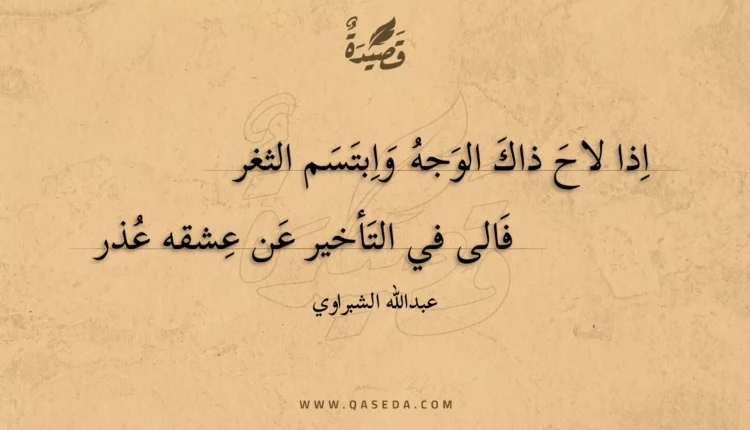 قَصِيْدَةٌ
اِذا لاحَ ذاكَ الوَجهُ وَاِبتَسَم الثغر
فَالى في التَأخير عَن عِشقه عُذر
عبدالله الشبراوي
WWW.QASEDA.COM